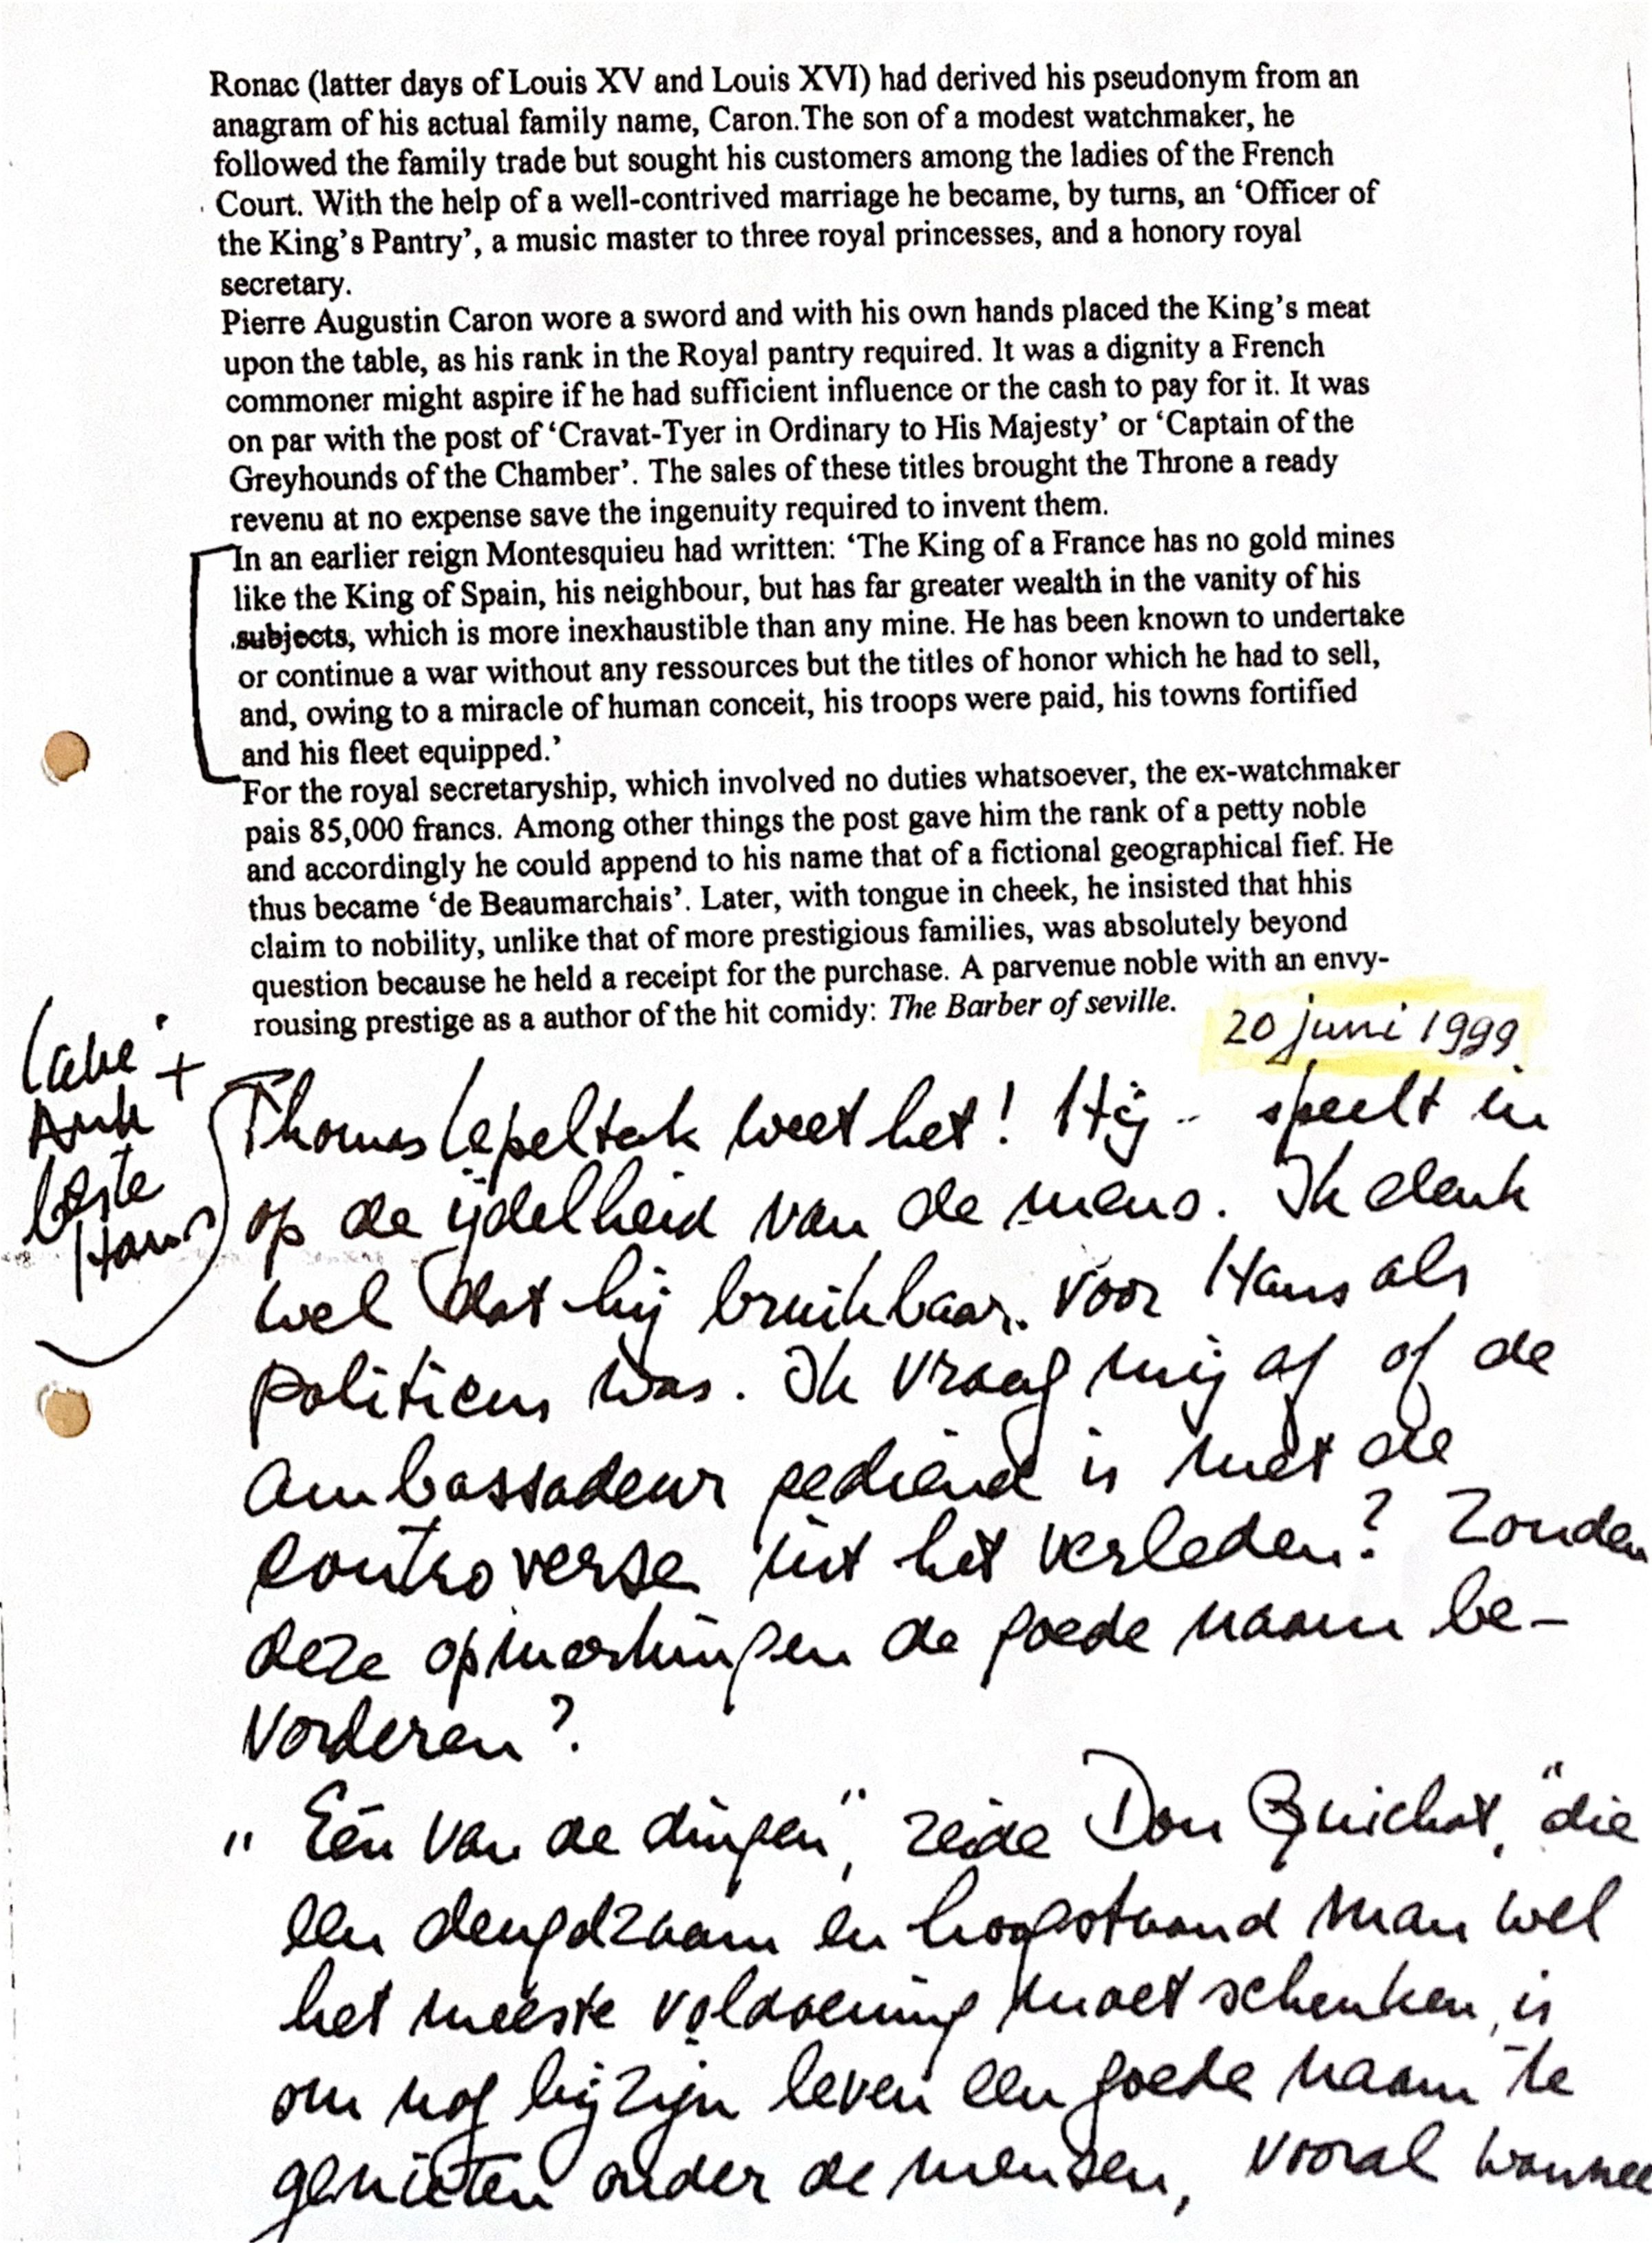 Ronac (latter days of Louis XV and Louis XVI) had derived his pseudonym from an
anagram of his actual family name, Caron.The son of a modest watchmaker, he
followed the family trade but sought his customers among the ladies of the French
Court. With the help of a well-contrived marriage he became, by turns, an ‘Officer of
the King’s Pantry’, a music master to three royal princesses, and a honory royal
secretary.
Pierre Augustin Caron wore a sword and with his own hands placed the King’s meat
upon the table, as his rank in the Royal pantry required. It was a dignity a French
commoner might aspire if he had sufficient influence or the cash to pay for it. It was
on par with the post of ‘Cravat-Tyer in Ordinary to His Majesty’ or ‘Captain of the
Greyhounds of the Chamber’. The sales of these titles brought the Throne a ready
revenu at no expense save the ingenuity required to invent them.
In an earlier reign Montesquieu had written: ‘The King of a France has no gold mines
like the King of Spain, his neighbour, but has far greater wealth in the vanity of his
subjects, which is more inexhaustible than any mine. He has been known to undertake
or continue a war without any ressources but the titles of honor which he had to sell,
and, owing to a miracle of human conceit, his troops were paid, his towns fortified
and his fleet equipped.’
For the royal secretaryship, which involved no duties whatsoever, the ex-watchmaker
pais 85,000 francs. Among other things the post gave him the rank of a petty noble
and accordingly he could append to his name that of a fictional geographical fief. He
thus became ‘de Beaumarchais’. Later, with tongue in cheek, he insisted that hhis
claim to nobility, unlike that of more prestigious families, was absolutely beyond
question because he held a receipt for the purchase. A parvenue noble with an envy-
rousing prestige as a author of the hit comidy: The Barber of seville.
20 juni 1999
+
beste
Hans
Thomas Lepeltak weet het! Hij - speelt in
op de ijdelheid van de mens. Ik denk
wel dat hij bruikbaar voor Hans als
politicus was. Ik vraag mij af of de
ambassadeur gediend is met de
controverse uit het verleden? Zouden
deze opmerkingen de goede naam be-
vorderen?
„ Eén van de dingen”, zeide Don Quichot, “die
een deugdzaam en hoogstaand man wel
het meeste voldoening moet schenken, is
om nog bij zijn leven een goede naam te
genieten onder de mensen, vooral wannee